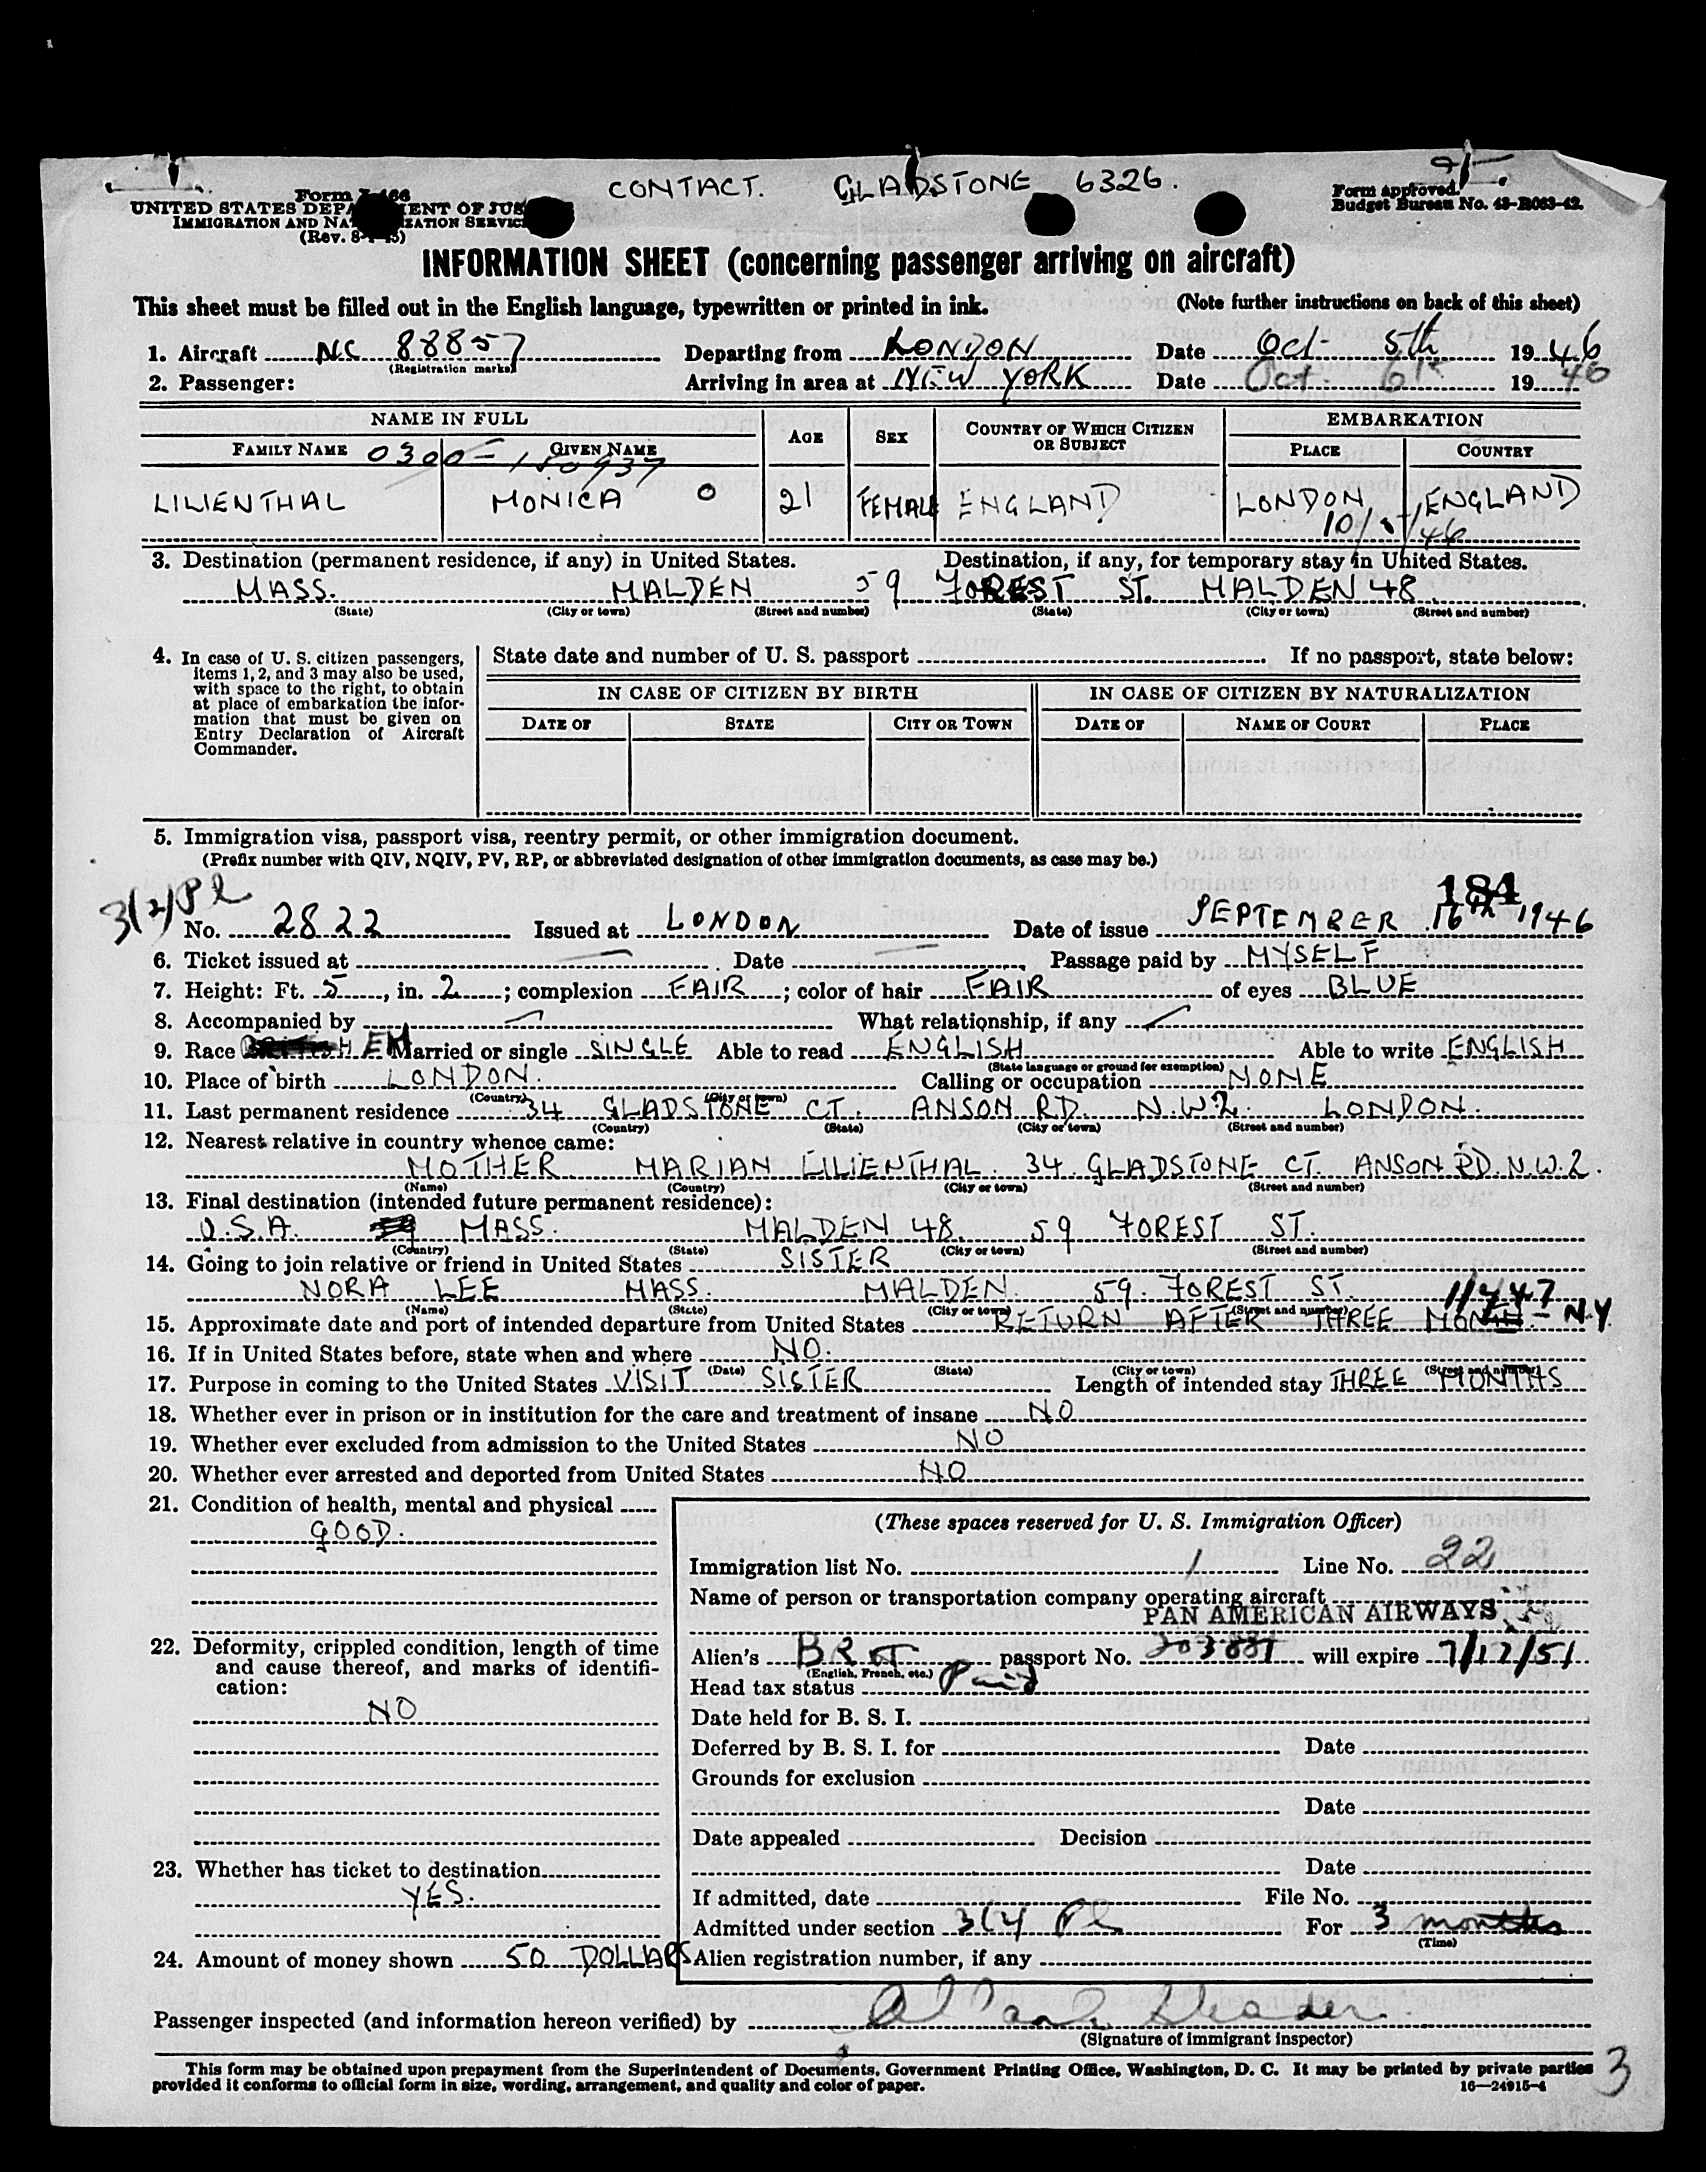 CONTACT. GLADSTONE 6326.
Form I-466
UNITED STATES DEPARTMENT OF JUSTICE
IMMIGRATION AND NATURALIZATION SERVICE
(Rev. 8-1-45)
Form approved.
Budget Bureau No. 43-R063-42.
INFORMATION SHEET (concerning passenger arriving on aircraft)
This sheet must be filled out in the English language, typewritten or printed in ink. (Note further instructions on back of this sheet)
1. Aircraft NC 88857 Departing from LONDON Date Oct 5th 1946
(Registration marks)
2. Passenger: Arriving in area at NEW YORK Date Oct 6th 1946
NAME IN FULL AGE SEX COUNTRY OF WHICH CITIZEN OR SUBJECT EMBARKATION
FAMILY NAME GIVEN NAME PLACE COUNTRY
0300-
LILIENTHAL MONICA O 21 FEMALE ENGLAND LONDON ENGLAND
10/5/46
3. Destination (permanent residence, if any) in United States. Destination, if any, for temporary stay in United States.
MASS. MALDEN 59 FOREST ST. MALDEN 48.
(State) (City or town) (Street and number) (State) (City or town) (Street and number)
4. In case of U. S. citizen passengers,
items 1, 2, and 3 may also be used,
with space to the right, to obtain
at place of embarkation the infor-
mation that must be given on
Entry Declaration of Aircraft
Commander.
State date and number of U. S. passport If no passport, state below:
IN CASE OF CITIZEN BY BIRTH IN CASE OF CITIZEN BY NATURALIZATION
DATE OF STATE CITY OR TOWN DATE OF NAME OF COURT PLACE
5. Immigration visa, passport visa, reentry permit, or other immigration document.
(Prefix number with QIV, NQIV, PV, RP, or abbreviated designation of other immigration documents, as case may be.)
184
3(2) Pl
No. 2822 Issued at LONDON Date of issue SEPTEMBER 16th 1946
6. Ticket issued at Date Passage paid by MYSELF
7. Height: Ft. 5, in. 2; complexion FAIR; color of hair FAIR of eyes BLUE
8. Accompanied by What relationship, if any
9. Race Married or single SINGLE Able to read ENGLISH Able to write ENGLISH
(State language or ground for exemption)
10. Place of birth LONDON. Calling or occupation NONE
(Country) (City or town)
11. Last permanent residence 34 GLADSTONE CT. ANSON RD. N.W2. LONDON.
(Country) (State) (City or town) (Street and number)
12. Nearest relative in country whence came:
MOTHER MARIAN LILIENTHAL. 34 GLADSTONE CT. ANSON RD. N.W.2.
(Name) (Country) (City or town) (Street and number)
13. Final destination (intended future permanent residence):
U.S.A. MASS. MALDEN 48. 59 FOREST ST.
(Country) (State) (City or town) (Street and number)
14. Going to join relative or friend in United States SISTER
NORA LEE MASS. MALDEN. 59. FOREST ST.
(Name) (State) (City or town) (Street and number)
15. Approximate date and port of intended departure from United States RETURN AFTER THREE MONTH - N.Y.
16. If in United States before, state when and where NO.
(Date) (State) (City or town) (Street and number)
17. Purpose in coming to the United States VISIT SISTER Length of intended stay THREE MONTHS
18. Whether ever in prison or in institution for the care and treatment of insane NO
19. Whether ever excluded from admission to the United States NO
20. Whether ever arrested and deported from United States NO
21. Condition of health, mental and physical
GOOD.
22. Deformity, crippled condition, length of time
and cause thereof, and marks of identifi-
cation:
NO
23. Whether has ticket to destination
YES.
24. Amount of money shown 50 DOLLARS
(These spaces reserved for U. S. Immigration Officer)
Immigration list No. 1 Line No. 22
Name of person or transportation company operating aircraft
PAN AMERICAN AIRWAYS
Alien's BRIT passport No. 203881 will expire 7/17/51
(English, French, etc.)
Head tax status Paid
Date held for B. S. I.
Deferred by B. S. I. for Date
Grounds for exclusion
Date
Date appealed Decision
Date
If admitted, date File No.
Admitted under section 3(2) Pl For 3 months
(Time)
Alien registration number, if any
Passenger inspected (and information hereon verified) by
(Signature of immigrant inspector)
This form may be obtained upon prepayment from the Superintendent of Documents, Government Printing Office, Washington, D. C. It may be printed by private parties
provided it conforms to official form in size, wording, arrangement, and quality and color of paper. 16—24915-4
3